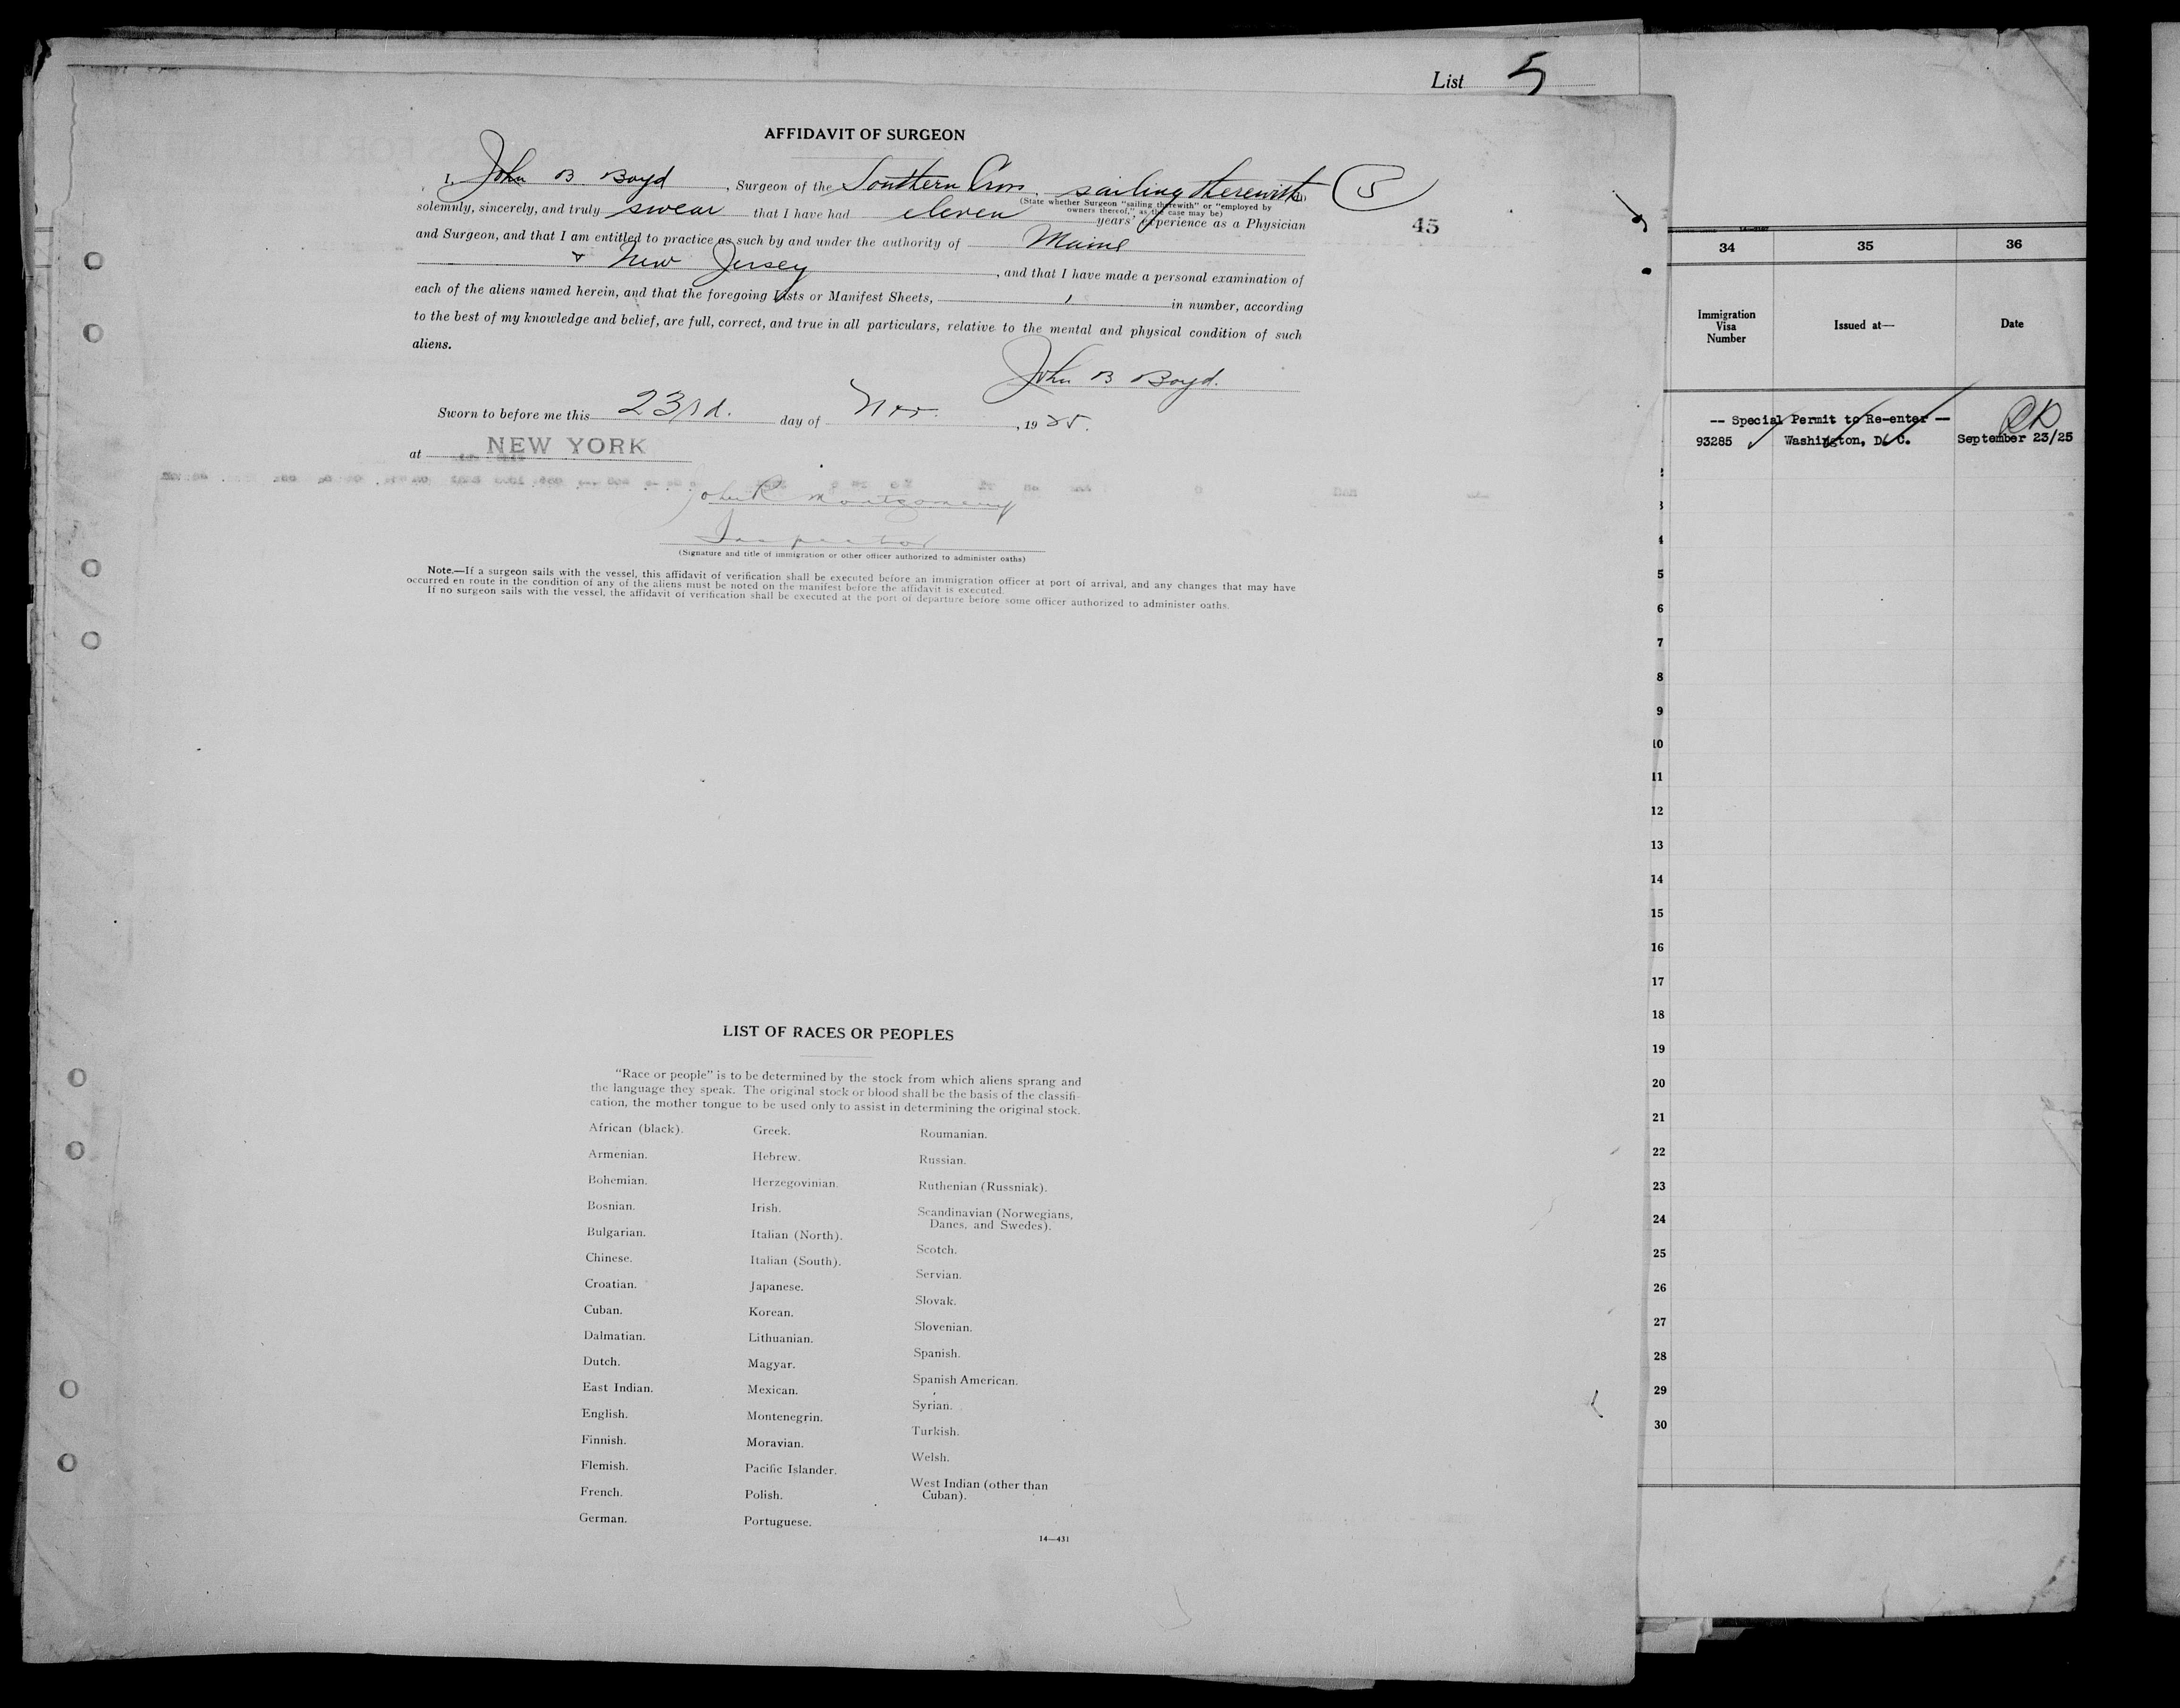 List 5
AFFIDAVIT OF SURGEON
I, John B Boyd, Surgeon of the Southern Cross, sailing therewith (1) 5
(State whether Surgeon "sailing therewith" or "employed by
owners thereof," as the case may be)
solemnly, sincerely, and truly swear that I have had eleven years' experience as a Physician
45
and Surgeon, and that I am entitled to practice as such by and under the authority of Maine
& New Jersey, and that I have made a personal examination of
each of the aliens named herein, and that the foregoing Lists or Manifest Sheets, 1 in number, according
to the best of my knowledge and belief, are full, correct, and true in all particulars, relative to the mental and physical condition of such
aliens.
John B Boyd.
Sworn to before me this 23rd. day of Nov., 1925.
at NEW YORK
John R Montgomery
Inspector
(Signature and title of immigration or other officer authorized to administer oaths)
Note.—If a surgeon sails with the vessel, this affidavit of verification shall be executed before an immigration officer at port of arrival, and any changes that may have
occurred en route in the condition of any of the aliens must be noted on the manifest before the affidavit is executed.
If no surgeon sails with the vessel, the affidavit of verification shall be executed at the port of departure before some officer authorized to administer oaths.
LIST OF RACES OR PEOPLES
"Race or people" is to be determined by the stock from which aliens sprang and
the language they speak. The original stock or blood shall be the basis of the classifi-
cation, the mother tongue to be used only to assist in determining the original stock.
African (black).
Armenian.
Bohemian.
Bosnian.
Bulgarian.
Chinese.
Croatian.
Cuban.
Dalmatian.
Dutch.
East Indian.
English.
Finnish.
Flemish.
French.
German.
Greek.
Hebrew.
Herzegovinian.
Irish.
Italian (North).
Italian (South).
Japanese.
Korean.
Lithuanian.
Magyar.
Mexican.
Montenegrin.
Moravian.
Pacific Islander.
Polish.
Portuguese.
Roumanian.
Russian.
Ruthenian (Russniak).
Scandinavian (Norwegians,
Danes, and Swedes).
Scotch.
Servian.
Slovak.
Slovenian.
Spanish.
Spanish American.
Syrian.
Turkish.
Welsh.
West Indian (other than
Cuban).
14—431
34 35 36
Immigration
Visa
Number
Issued at—
Date
-- Special Permit to Re-enter --
93285 Washington, D. C. September 23/25
2
3
4
5
6
7
8
9
10
11
12
13
14
15
16
17
18
19
20
21
22
23
24
25
26
27
28
29
30